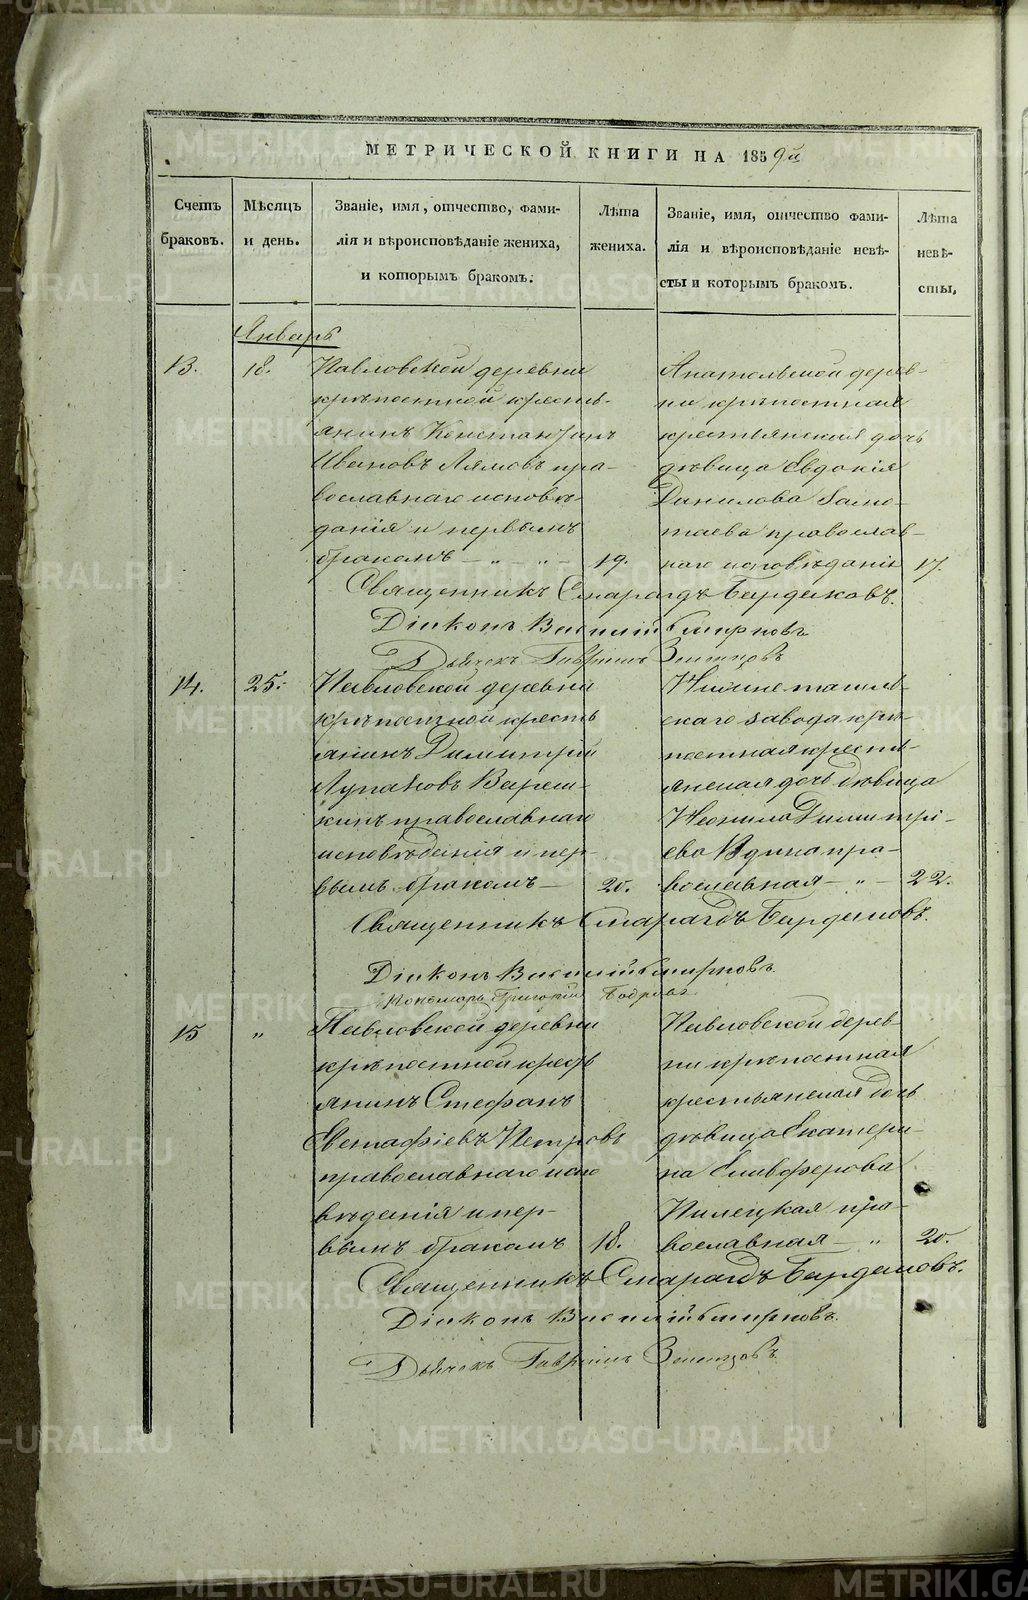 МЕТРИЧЕСКОЙ КНИГИ НА 1859й
Счетъ браковъ.
Мѣсяцъ и день.
Званіе, имя, отчество, фами-
лія и вѣроисповѣданіе жениха,
и которымъ бракомъ.
Лѣта жениха.
Званіе, имя, отчество фами-
лія и вѣроисповѣданіе невѣ-
сты и которымъ бракомъ.
Лѣта невѣ-
сты.
Январь
13.
18.
Павловской деревни
крѣпостной кресть-
янинъ Константинъ
Ивановъ Лямовъ пра-
вославнаго исповѣ-
данія и первымъ
бракомъ — „ — „ —
19.
Анатольской дерев-
ни крѣпостная
крестьянская дочь
дѣвица Евдокія
Данилова
православ-
наго исповѣданія
17.
Священникъ Смарагдъ Бардаковъ.
Діаконъ Василій Смирновъ
Дьячекъ Гавріилъ
14.
25.
Павловской деревни
крѣпостной кресть
янинъ Димитрій
Лупановъ
православнаго
исповѣданія и пер-
вымъ бракомъ —
20.
Нижнетагиль-
скаго завода крѣ-
постная кресть-
янская дочь дѣвица
Неонила Димитрі-
ева пра-
вославная — „ —
22.
Священникъ Смарагдъ Бардаковъ.
Діаконъ Василій Смирновъ.
Пономарь Григорій
15
„
Павловской деревни
крѣпостной кресть
янинъ Стефанъ
Евстафіевъ Петровъ
православнаго испо
вѣданія и пер-
вымъ бракомъ
18.
Павловской дерев-
ни крѣпостная
крестьянская дочь
дѣвица Екатери-
на Елиферова
Пилецкая пра-
вославная — „
20.
Священникъ Смарагдъ Бардаковъ.
Діаконъ Василій Смирновъ.
Дьячекъ Гавріилъ
METRIKI.GASO-URAL.RU